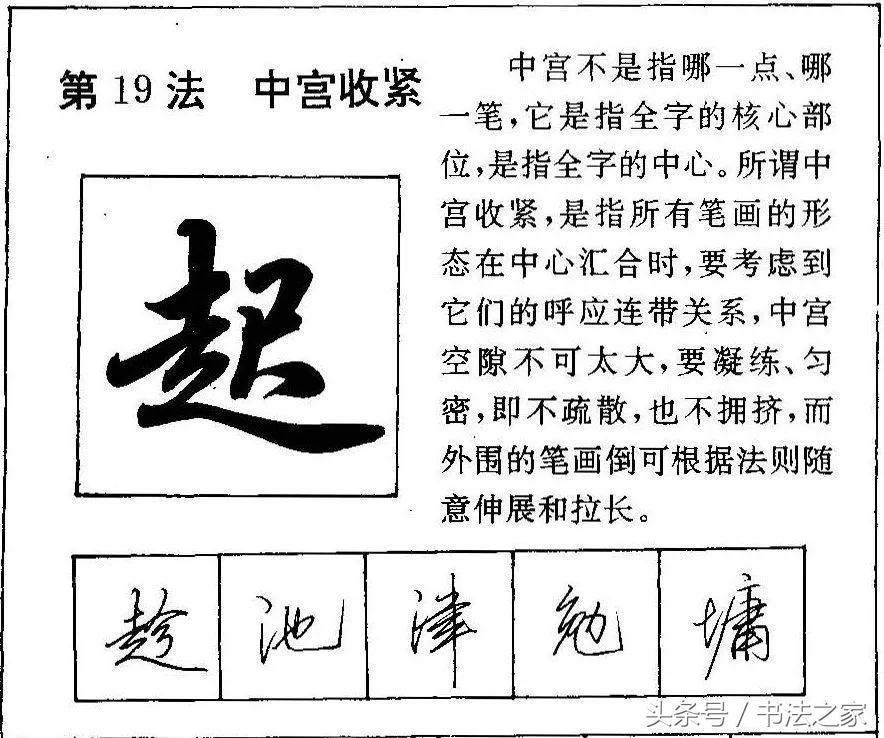 第19法 中宫收紧
中宫不是指哪一点、哪
一笔，它是指全字的核心部
位，是指全字的中心。所谓中
宫收紧，是指所有笔画的形
态在中心汇合时，要考虑到
它们的呼应连带关系，中宫
空隙不可太大，要凝练、匀
密，即不疏散，也不拥挤，而
外围的笔画倒可根据法则随
意伸展和拉长。
起
趁 池 津 勉 墉
头条号／书法之家